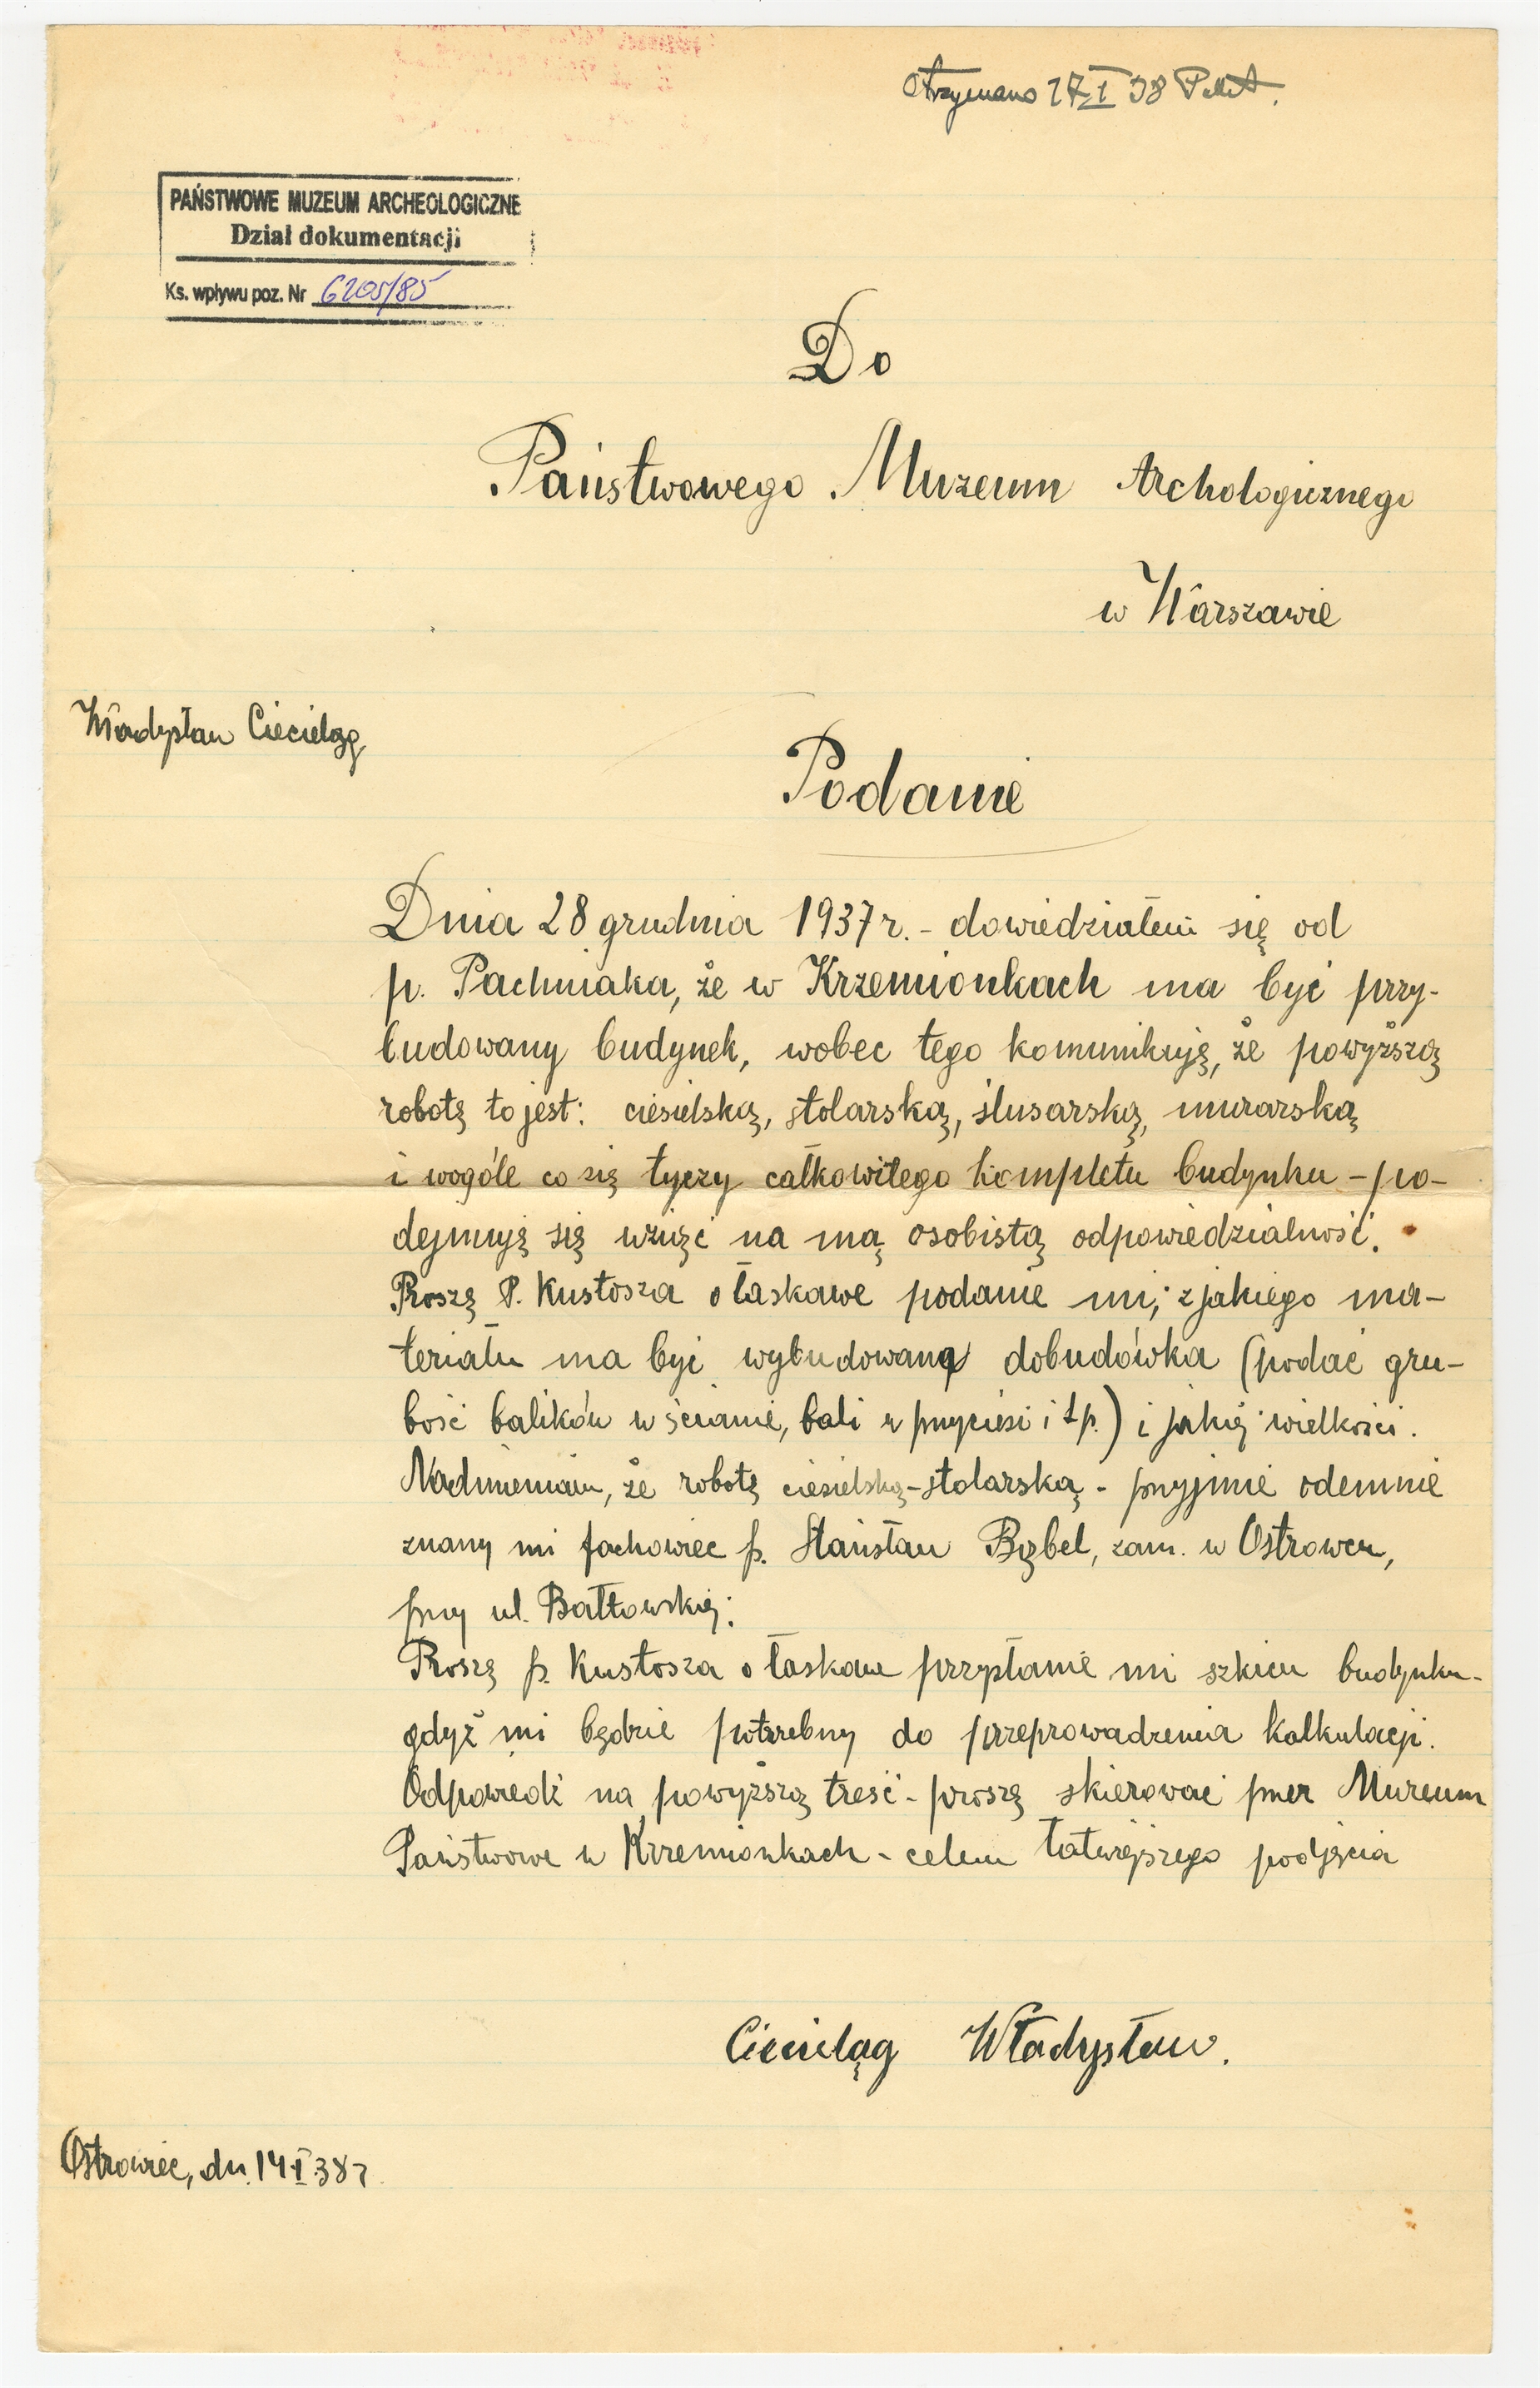 Otrzymano 17 I 38
PAŃSTWOWE MUZEUM ARCHEOLOGICZNE
Dział dokumentacji
Ks. wpływu poz. Nr 6205/85
Do
Państwowego Muzeum Archologicznego
w Warszawie
Władysław Ciecieląg
Podanie
Dnia 28 grudnia 1937 r. - dowiedziałem się od
p. Pachniaka, że w Krzemionkach ma być przy-
budowany budynek, wobec tego komunikuję, że powyższą
robotę to jest: ciesielską, stolarską, ślusarską, murarską
i wogóle co się tyczy całkowitego kompletu budynku - po-
dejmuję się wziąć na mą osobistą odpowiedzialność.
Proszę P. Kustosza o łaskawe podanie mi, z jakiego ma-
teriału ma być wybudowana dobudówka (podać gru-
bość balików w ścianie, bali w przyciesi i t.p.) i jakiej wielkości.
Nadmieniam, że robotę ciesielską-stolarską - przyjmie odemnie
znany mi fachowiec p. Stanisław Bąbel, zam. w Ostrowcu,
przy ul. Bałtowskiej.
Proszę p. Kustosza o łaskawe przysłanie mi szkicu budynku -
gdyż mi będzie potrzebny do przeprowadzenia kalkulacji.
Odpowiedź na powyższą treść - proszę skierować przez Muzeum
Państwowe w Krzemionkach - celem łatwiejszego podjęcia
Ciecieląg Władysław.
Ostrowiec, dn. 14 I 38 r